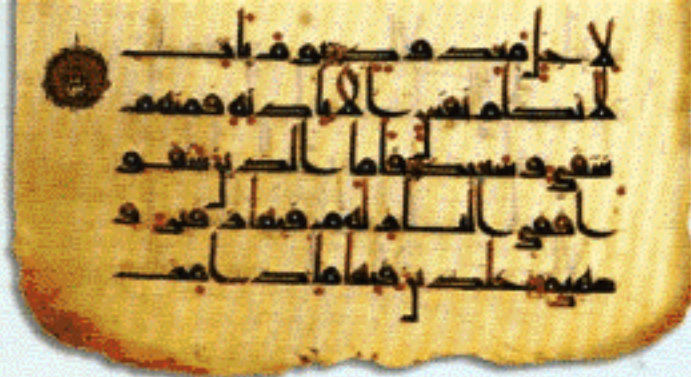 لا جل معدود يوم يات
لا تكلم نفس الا باذنه فمنهم
شقي و سعيد فاما الذين شقو
ا ففي النار لهم فيها زفير و
شهيق خلدين فيها ما دامت